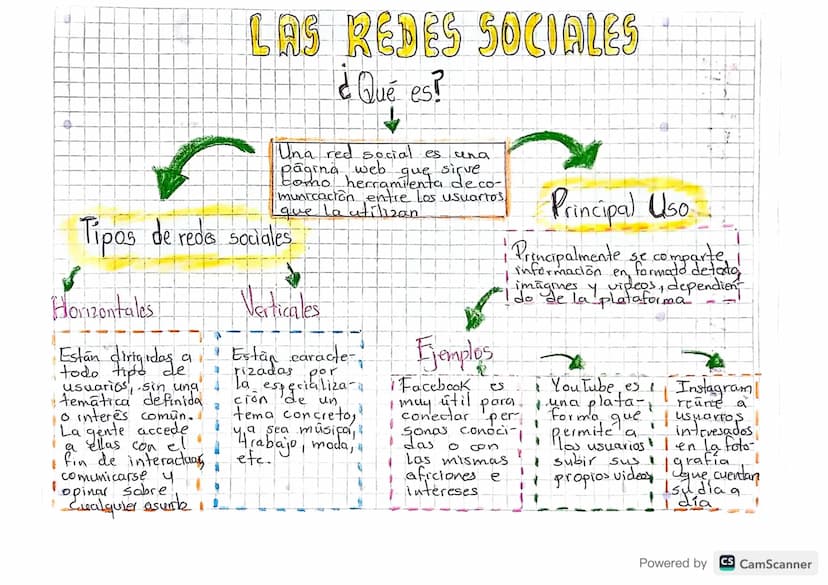 LAS REDES SOCIALES
¿Qué es?
Una red social es una
página web que sirve
como herramienta de co-
municación entre los usuarios
que la utilizan
Tipos de redes sociales
Principal Uso
Principalmente se comparte
información en formato de todo,
imágnes y videos, dependien-
do de la plataforma
Horizontales
Verticales
Ejemplos
Están dirigidas a
todo tipo de
usuarios, sin una
temática definida
o interés común.
La gente accede
a ellas con el
fin de interactuar,
comunicarse y
opinar sobre
cualquier asunto
Están caracte-
rizadas por
la especializa-
ción de un
tema concreto,
ya sea música,
trabajo, moda,
etc.
Facebook es
muy útil para
conectar per-
sonas conoci-
das o con
las mismas
aficiones e
intereses
YouTube es
una plata-
forma que
permite a
los usuarios
subir sus
propios videos
Instagram
reúne a
usuarios
interesados
en la foto-
grafía
que cuentan
su día a
día
Powered by CS CamScanner